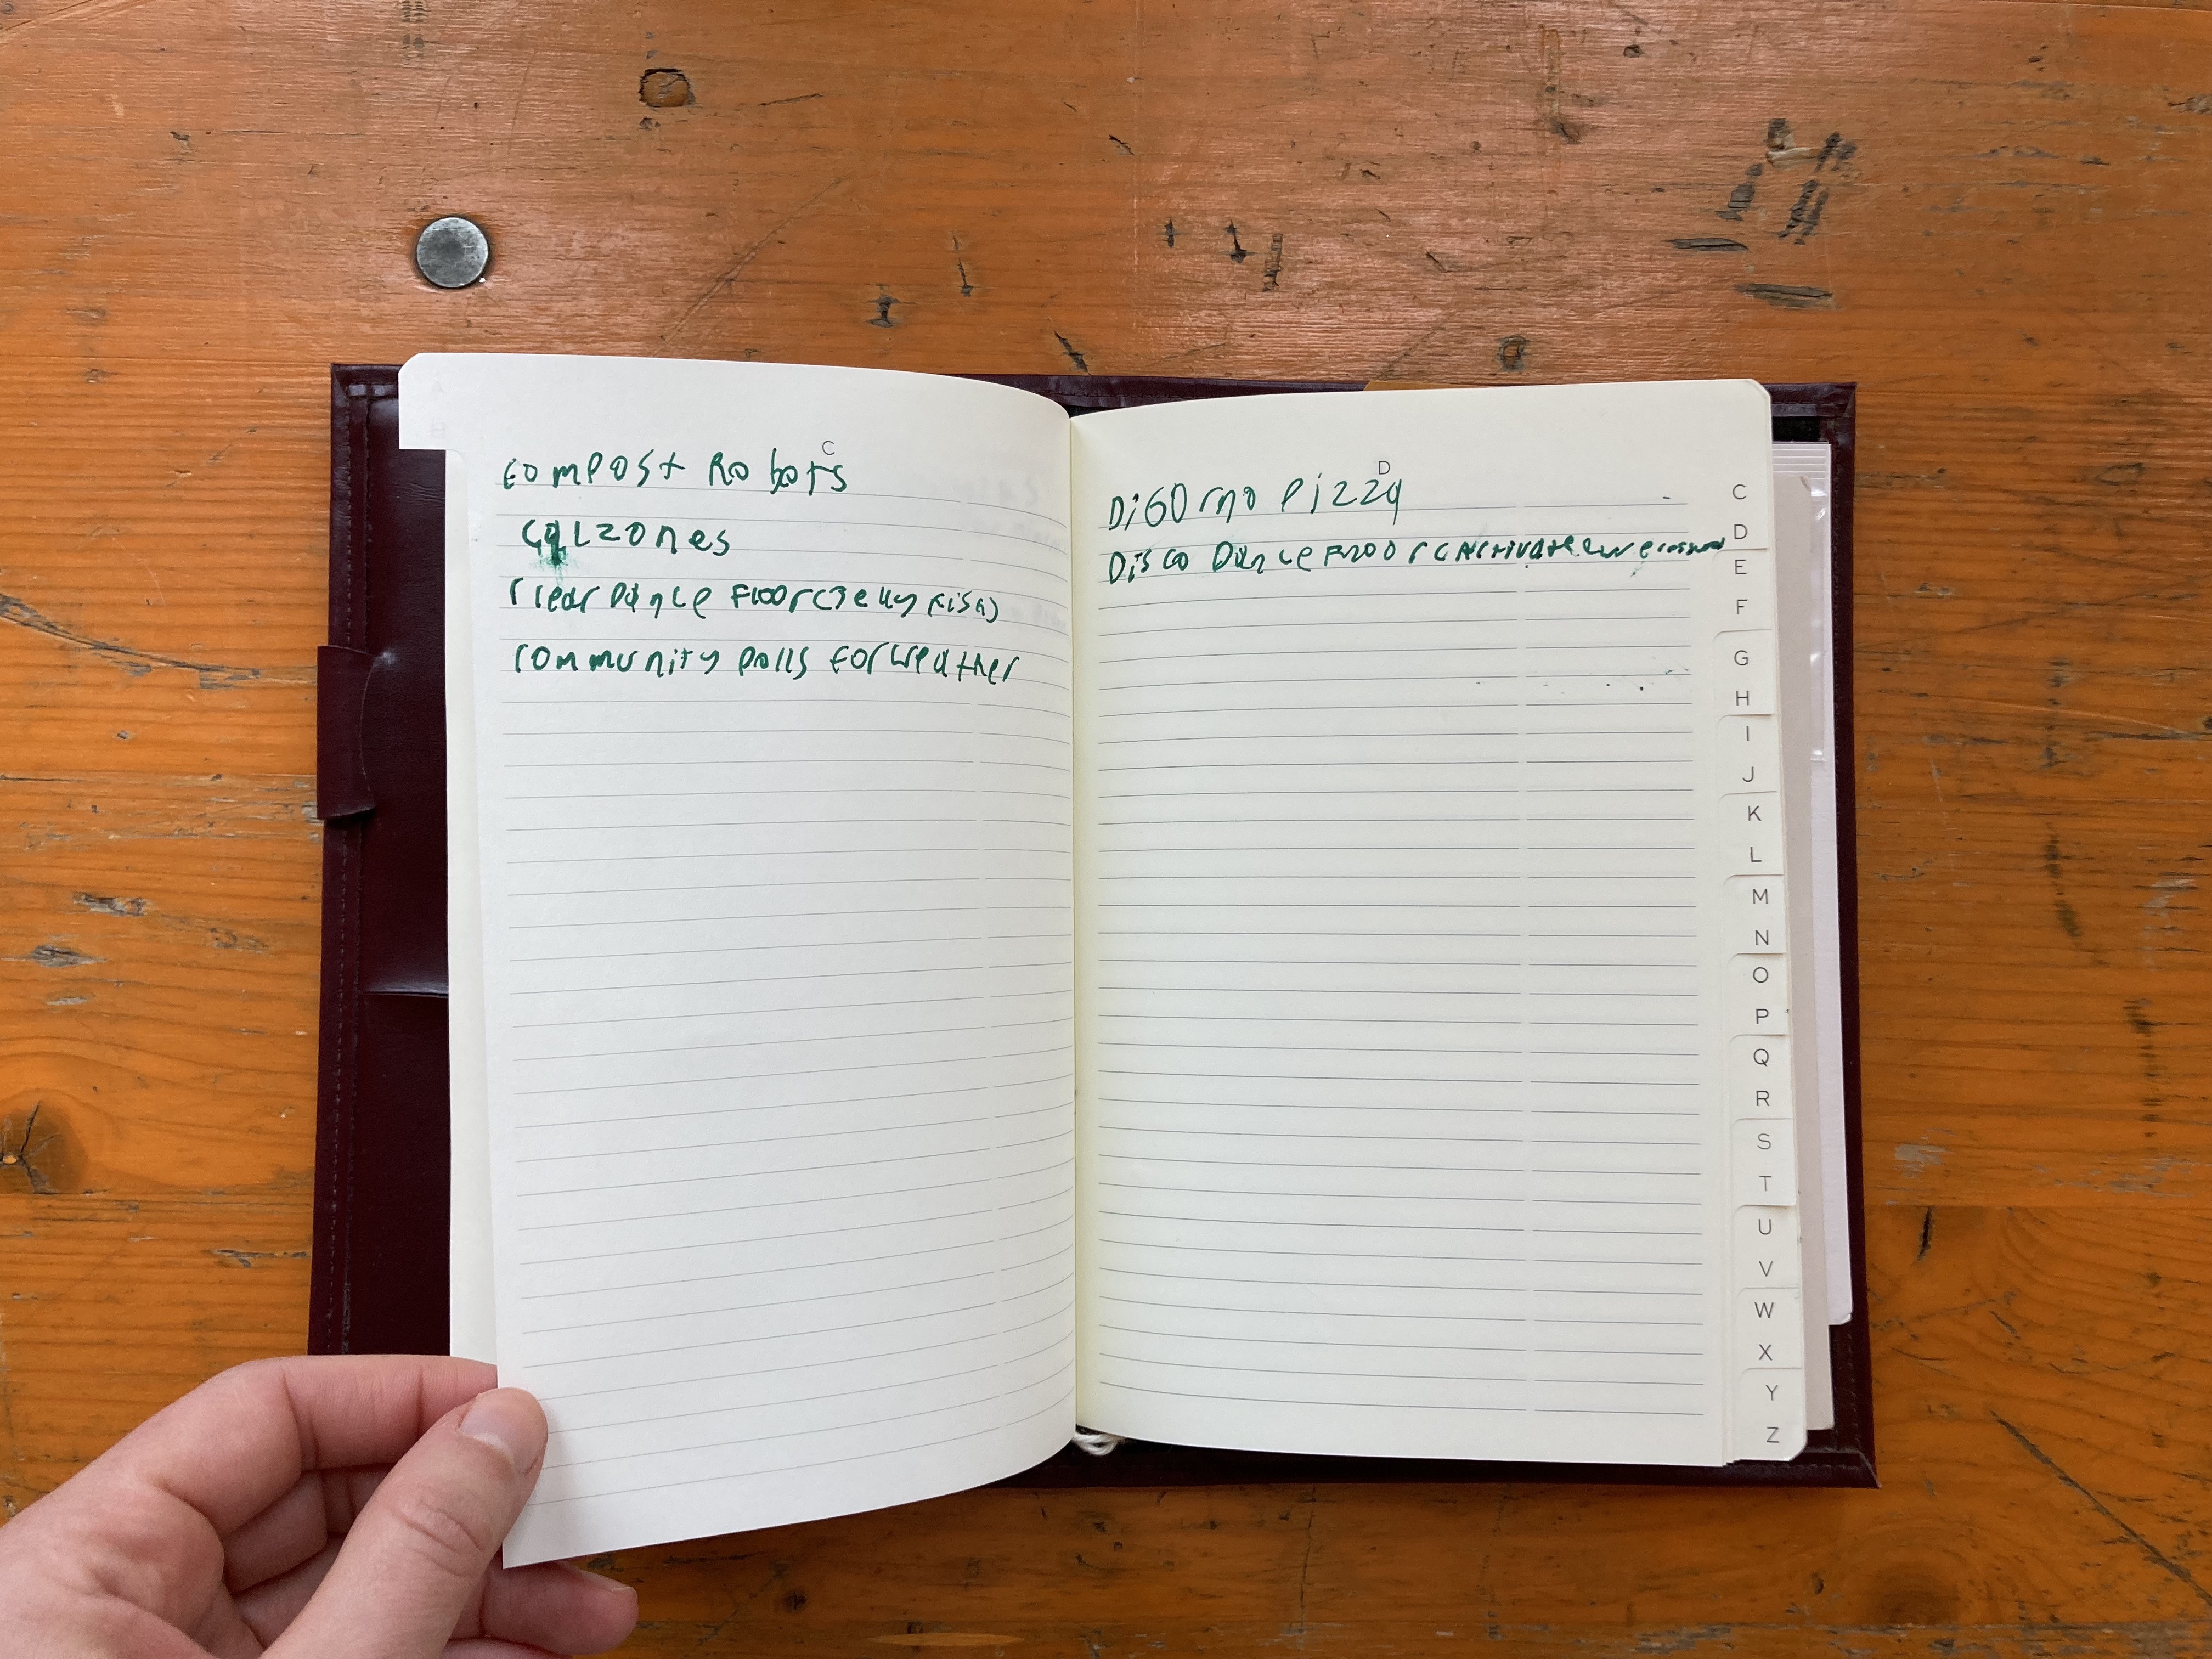 C
compost Robots
calzones
clear Dance Floor (Jelly Fish)
community polls for weather
D
DiGOrno Pizza
Disco Dance Floor (Activate
C
D
E
F
G
H
I
J
K
L
M
N
O
P
Q
R
S
T
U
V
W
X
Y
Z